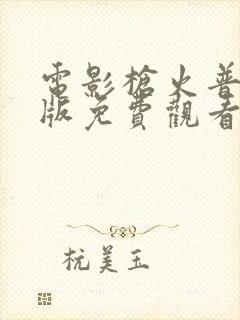 電影槍火普
版免費觀看
杭美玉